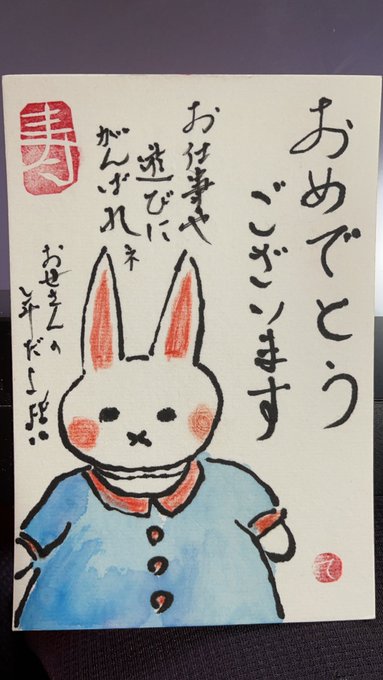 おめでとう
ございます
お仕事や
遊びに
がんばれ
ネ
寿
年だよ
て